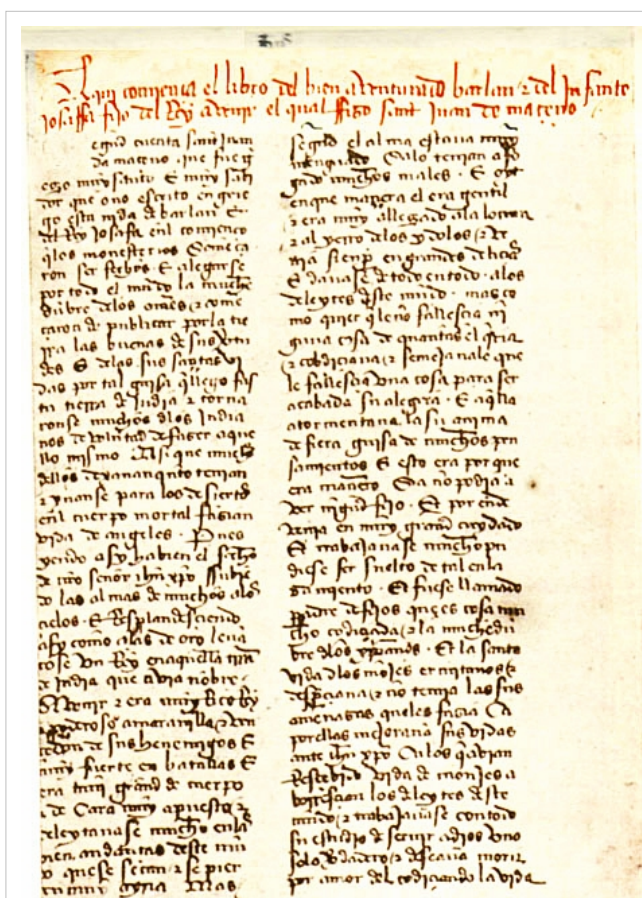 Aqui comiença el libro del bien aventurado barlan e del Infante
iosaffa fijo del Rey avenir el qual fizo sant iuan de maçeno
egund cuenta sant iuan
da maçeno que fue
ego muy santo E muy sabi
dor que ovo escrito en grie
go esta vida de barlan E
del Rey iosafa enl comienço
qlos monesterios Començа
ron ser fechos E alegarse
por todo el mundo la muche
dubre delos omes e come
çaron de publicar por la tie
rra las buenas de sus virtu
des E delas sus santas vi
das por tal guisa q llego fas
ta tierra de india e torna
ronse muchos dlos india
nos de voluntad de faser aque
llo mismo Asi que muchos
dellos
e yvanse para los desiertos
enl cuerpo mortal fasian
vida de angeles Pues
yendo asy bien el fecho
de nro señor ihu xpo
do las almas de muchos alos
çielos E Resplandesciendo
asy como alas de oro leva
tose un Rey en aquella trra
de india que avia nobre
Avenir e era muy Rico Rey
poderoso
de sus henemigos E
muy fuerte en batallas E
era muy grand de cuerpo
de Cara muy apuesto e
deleytavase mucho enlas
bien andanças deste mu
do que se secan e se pier
den muy ayna Mas
segund el alma estava muy
menguado Ca lo tenian afo
gado muchos males E
en que manera el era gentil
e era muy allegado ala locura
e al yerro delos ydolos
sienpre en grandes deliçias
E davase de todo en todo alos
deleytes deste mundo mas co
mo quier q le no fallesçia ni
guna cosa de quantas el qria
e cobdiciava e semejavale que
le fallesçia una cosa para ser
acabada su alegria E aqlla
atormentava la su anima
de fiera guisa de muchos pen
samientos E esto era por que
era mañero Ca no podia a
ver ningud fijo E por ende
tenia en muy grand cuydado
E trabajavase mucho
diese ser suelto de tal enla
zamiento E fuese llamado
padre de fijos q es cosa mu
cho codiçiada e la muchedu
bre dlos xpianos E la santa
vida dlos mojes ermitanos
despreciava e no temia las sus
amenazas que les fasia Ca
por ellas mejoravan sus vidas
ante ihu xpo Ca los q avian
Resçebido vida de monjes a
borresçian los deleytes deste
mudo e trabajavase con todo
su estudio d servir a dios uno
solo verdadero e deseava morir
por amor del codiciando la vida